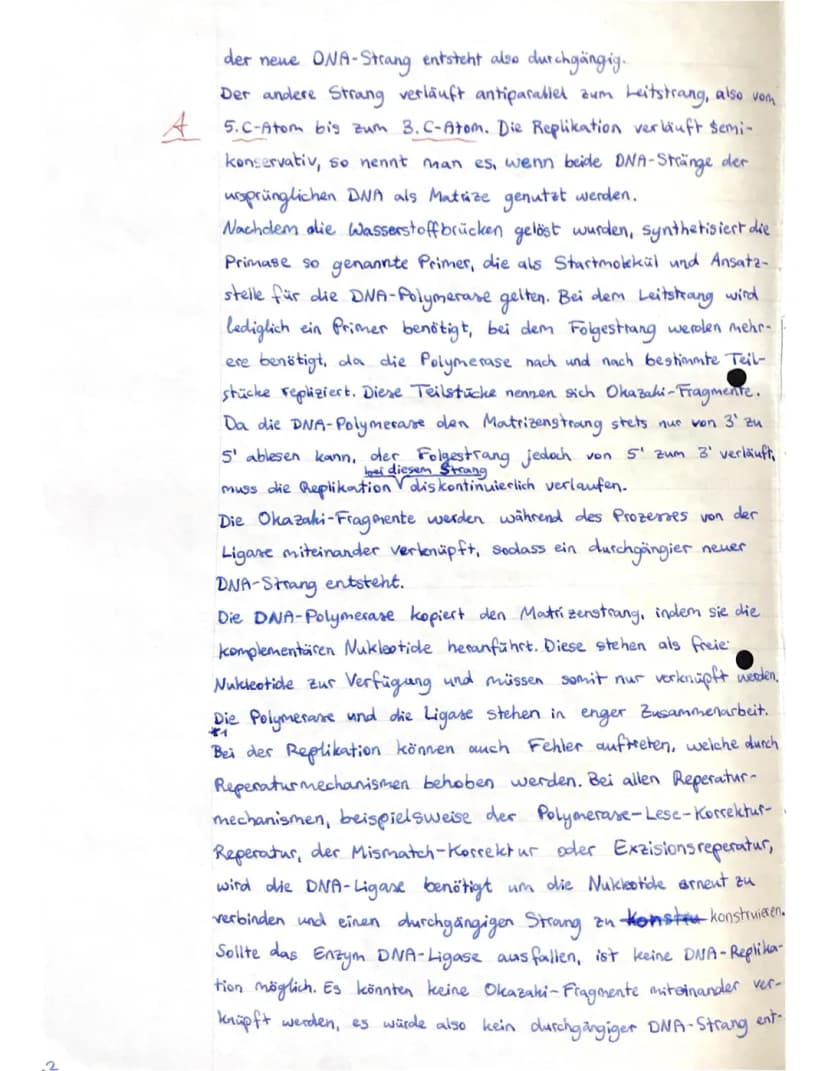 der neue DNA-Strang entsteht also durchgängig.
Der andere Strang verläuft antiparallel zum Leitstrang, also vom
A 5.C-Atom bis zum 3.C-Atom. Die Replikation verläuft semi-
konservativ, so nennt man es, wenn beide DNA-Stränge der
ursprünglichen DNA als Matrize genutzt werden.
Nachdem die Wasserstoffbrücken gelöst wurden, synthetisiert die
Primase so genannte Primer, die als Startmolekkül und Ansatz-
stelle für die DNA-Polymerase gelten. Bei dem Leitstrang wird
lediglich ein Primer benötigt, bei dem Folgestrang werden mehr-
ere benötigt, da die Polymerase nach und nach bestimmte Teil-
stücke repliziert. Diese Teilstücke nennen sich Okazaki-Fragmente.
Da die DNA-Polymerase den Matrizenstrang stets nur von 3' zu
5' ablesen kann, der Folgestrang jedoch von 5' zum 3' verläuft,
bei diesem Strang
muss die Replikation √ diskontinuierlich verlaufen.
Die Okazaki-Fragmente werden während des Prozesses von der
Ligase miteinander verknüpft, sodass ein durchgängier neuer
DNA-Strang entsteht.
Die DNA-Polymerase kopiert den Matrizenstrang, indem sie die
komplementären Nukleotide heranführt. Diese stehen als freie
Nukleotide zur Verfügung und müssen somit nur verknüpft werden.
Die Polymerase und die Ligase stehen in enger Zusammenarbeit.
*1
Bei der Replikation können auch Fehler auftreten, welche durch
Reperaturmechanismen behoben werden. Bei allen Reperatur-
mechanismen, beispielsweise der Polymerase-Lese-Korrektur-
Reperatur, der Mismatch-Korrektur oder Exzisionsreperatur,
wird die DNA-Ligase benötigt um die Nukleotide erneut zu
verbinden und einen durchgängigen Strang zu Konstru konstruieren.
Sollte das Enzym DNA-Ligase ausfallen, ist keine DNA-Replika-
tion möglich. Es könnten keine Okazaki-Fragmente miteinander ver-
knüpft werden, es würde also kein durchgängiger DNA-Strang ent-
2